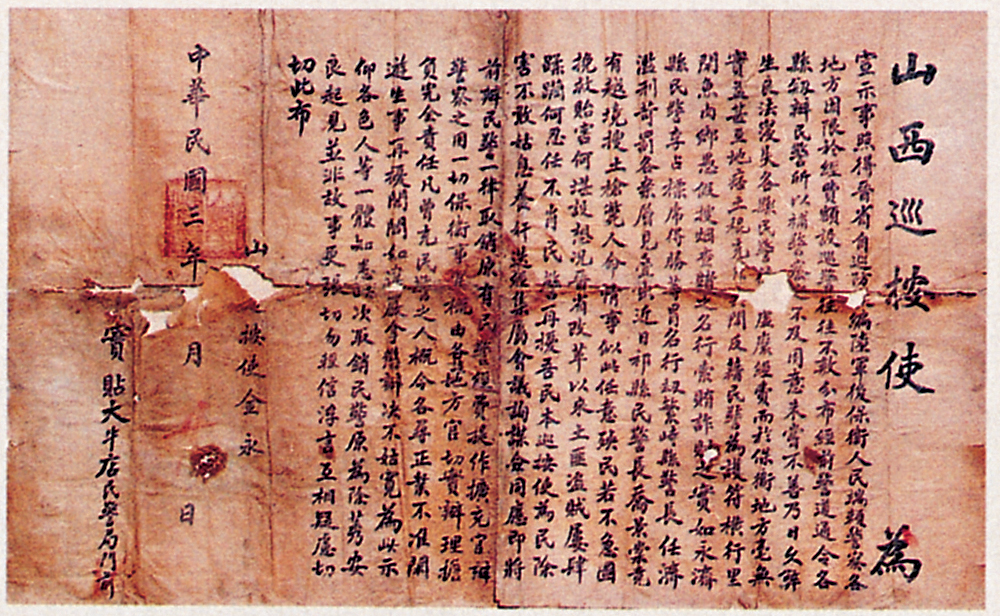 山西巡按使 為
宣示事照得晉省自巡防編陸軍後保衛人民端賴警察各
地方因限於經費額設巡警往往不敷分布經前警道通令各
縣組辦民警所以補警察不及用意未嘗不善乃日久弊
生良法寖失各縣民警虛糜經費而於保衛地方毫無
實益甚至地痞土棍充間及藉民警為護符橫行里
閭魚肉鄉愚假搜烟查賭之名行索賄詐財之實如永濟
縣民警李占標席得勝等冒名行劫繁峙縣警長任濟
濫利苛罰各案層見疊出近日祁縣民警長喬景棠竟
有越境搜土槍斃人命情事似此任意殃民若不急圖
挽救貽害何堪設想況晉省改革以來土匪盜賊屢肆
蹂躪何忍任不肖民警再擾吾民本巡按使為民除
害不敢姑息養奸迭經集屬會議詢謀僉同應即將
前辦民警一律取銷原有民警經費提作擴充官辦
警察之用一切保衛事概由各地方官切實辦理擔
負完全責任凡曾充民警之人概令各尋正業不准閒
遊生事再擾閭閻如違嚴拿懲辦決不姑寬為此示
仰各色人等一體知悉該次取銷民警原為除莠安
良起見並非故事更張切勿輕信浮言互相疑慮切
切此布
山按使金永
中華民國三年 月 日
實貼大牛店民警局門前